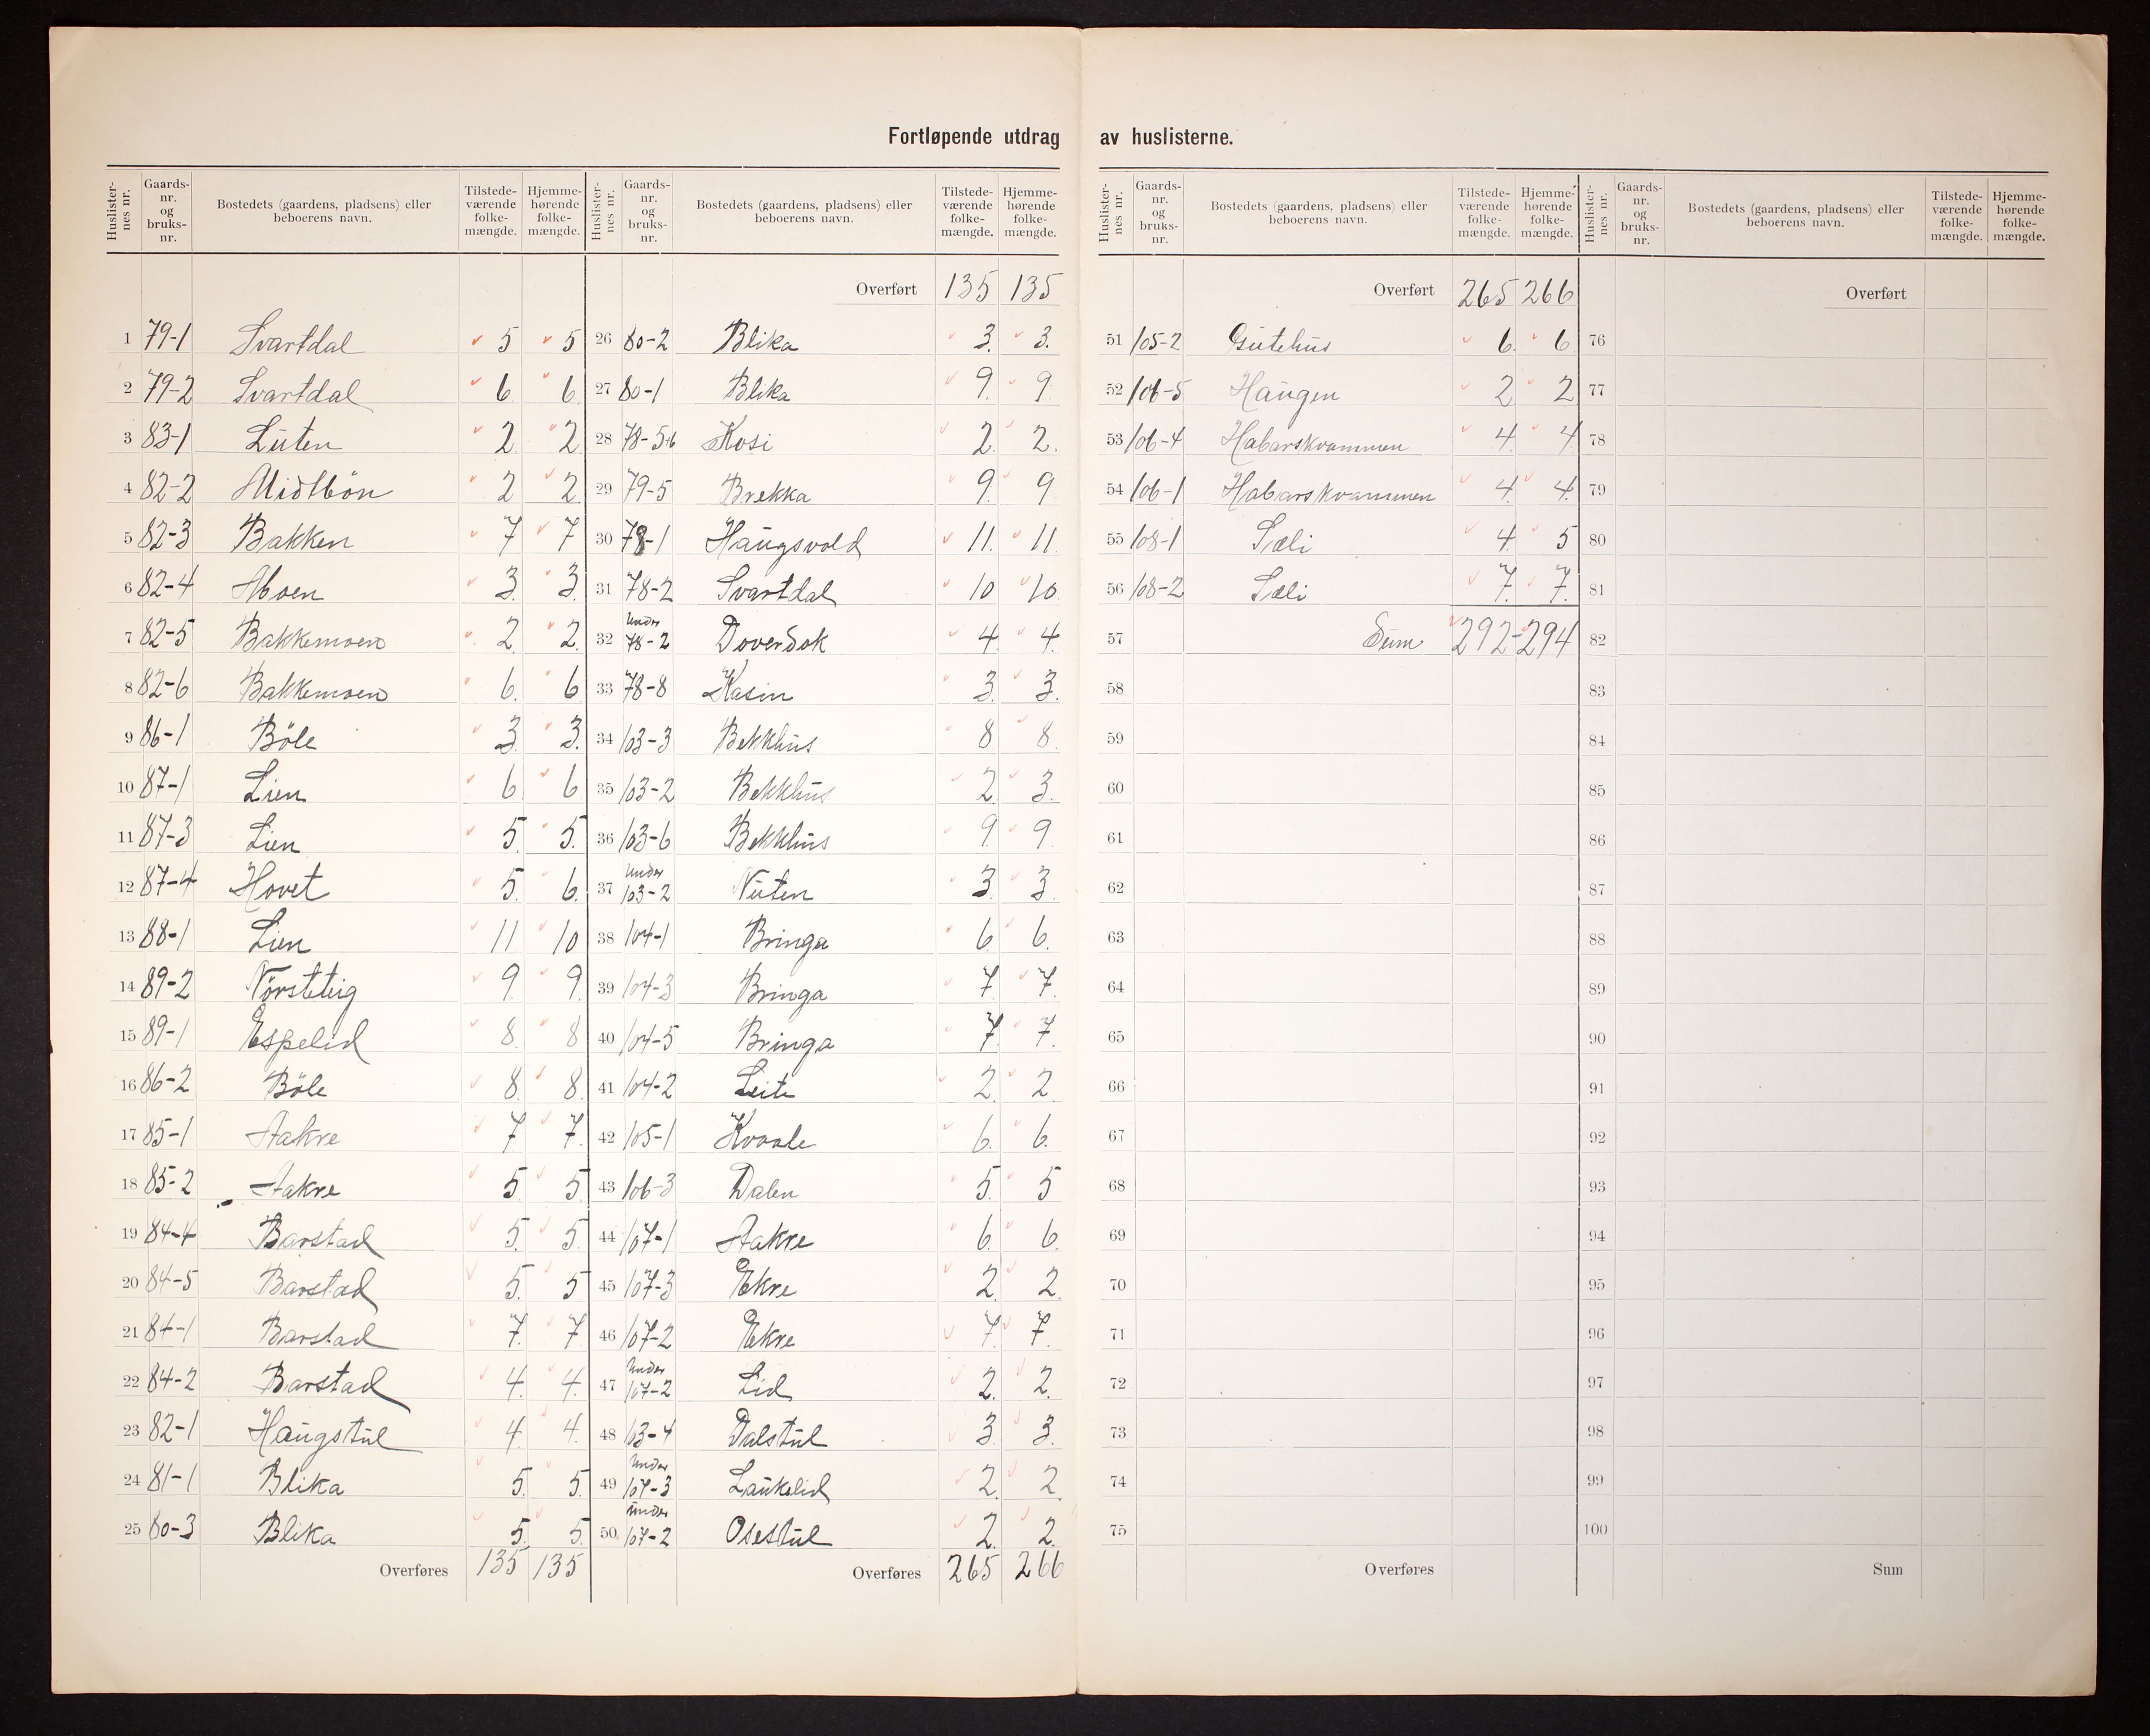 Fortløpende utdrag av huslisterne.
Huslisternes nr. | Gaards-nr. og bruks-nr. | Bostedets (gaardens, pladsens) eller beboerens navn. | Tilstedeværende folkemængde. | Hjemmehørende folkemængde.
1 79-1 Svartdal 5 5
2 79-2 Svartdal 6 6
3 83-1 Luten 2 2
4 82-2 Midtbön 2 2
5 82-3 Bakken 7 7
6 82-4 Moen 3 3
7 82-5 Bakkemoen 2 2
8 82-6 Bakkemoen 6 6
9 86-1 Böle 3 3
10 87-1 Lien 6 6
11 87-3 Lien 5 5
12 87-4 Hovet 5 6
13 88-1 Lien 11 10
14 89-2 Nörsteteig 9 9
15 89-1 Espelid 8 8
16 86-2 Böle 8 8
17 85-1 Aakre 7 7
18 85-2 Aakre 5 5
19 84-4 Barstad 5 5
20 84-5 Barstad 5 5
21 84-1 Barstad 7 7
22 84-2 Barstad 4 4
23 82-1 Haugstul 4 4
24 81-1 Blika 5 5
25 80-3 Blika 5 5
Overføres 135 135
Huslisternes nr. | Gaards-nr. og bruks-nr. | Bostedets (gaardens, pladsens) eller beboerens navn. | Tilstedeværende folkemængde. | Hjemmehørende folkemængde.
Overført 135 135
26 80-2 Blika 3 3
27 80-1 Blika 9 9
28 78-5+6 Kosi 2 2
29 79-5 Brekka 9 9
30 78-1 Haugsvold 11 11
31 78-2 Svartdal 10 10
32 Under 78-2 Doverdok 4 4
33 78-8 Kasin 3 3
34 103-3 Bekkhus 8 8
35 103-2 Bekkhus 2 3
36 103-6 Bekkhus 9 9
37 Under 103-2 Nuten 3 3
38 104-1 Bringa 6 6
39 104-3 Bringa 7 7
40 104-5 Bringa 7 7
41 104-2 Leite 2 2
42 105-1 Kvaale 6 6
43 106-3 Dalen 5 5
44 107-1 Aakre 6 6
45 107-3 Ekre 2 2
46 107-2 Ekre 7 7
47 Under 107-2 Lid 2 2
48 103-4 Dalstul 3 3
49 Under 107-3 Laukelid 2 2
50 Under 107-2 Osestul 2 2
Overføres 265 266
Huslisternes nr. | Gaards-nr. og bruks-nr. | Bostedets (gaardens, pladsens) eller beboerens navn. | Tilstedeværende folkemængde. | Hjemmehørende folkemængde.
Overført 265 266
51 105-2 Gutehus 6 6
52 106-5 Haugen 2 2
53 106-4 Habarskvammen 4 4
54 106-1 Habarskvammen 4 4
55 108-1 Sæli 4 5
56 108-2 Sæli 7 7
57 Sum 292-294
58
59
60
61
62
63
64
65
66
67
68
69
70
71
72
73
74
75
Overføres
Huslisternes nr. | Gaards-nr. og bruks-nr. | Bostedets (gaardens, pladsens) eller beboerens navn. | Tilstedeværende folkemængde. | Hjemmehørende folkemængde.
Overført
76
77
78
79
80
81
82
83
84
85
86
87
88
89
90
91
92
93
94
95
96
97
98
99
100
Sum